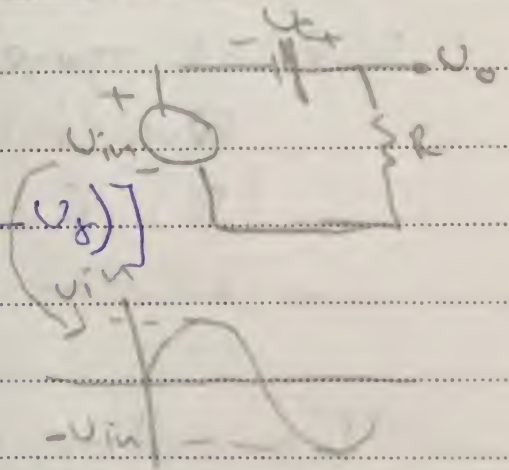 - Vc +
Vo
+
Vin
-
R
- Vγ)]
Vin
-Vin